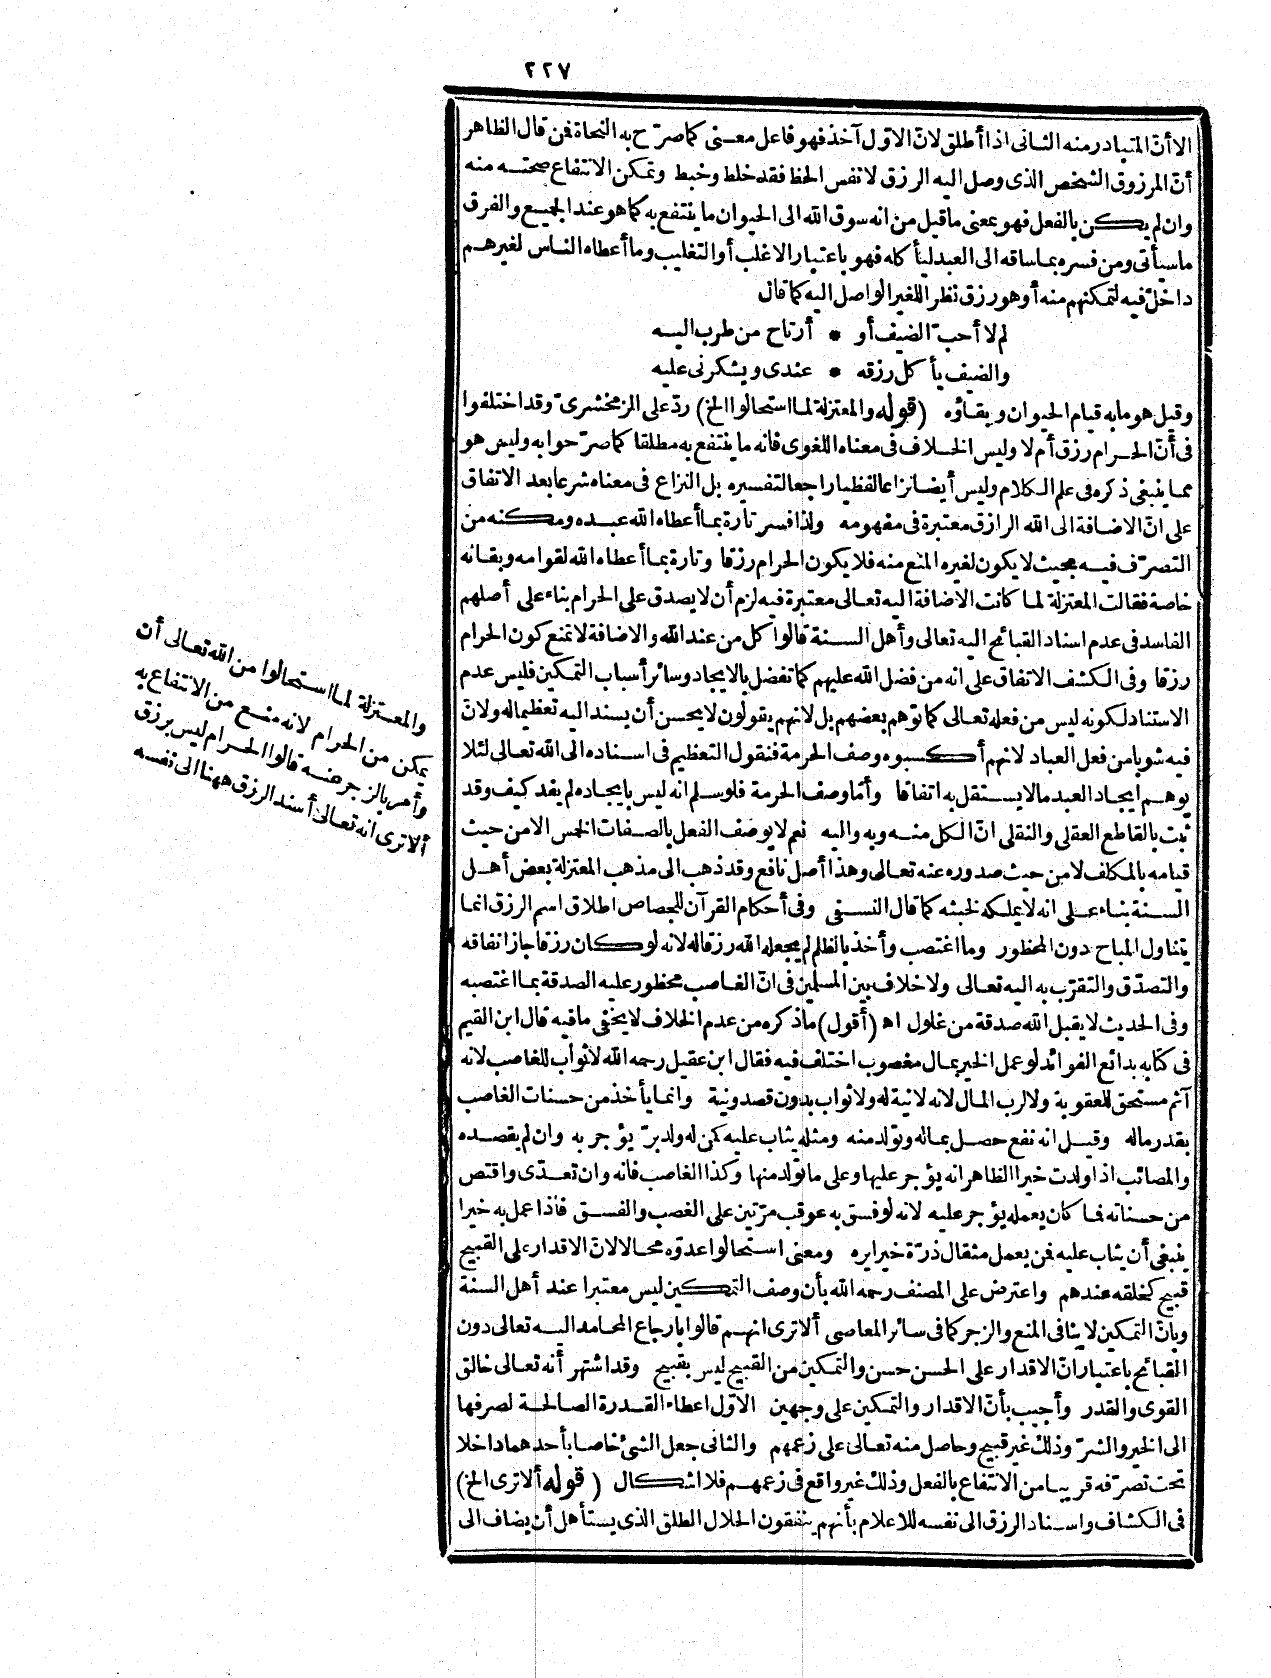 ٢٢٧
الا أنّ المتبادر منه الثانى اذا أطلق لانّ الاوّل آخذ فهو فاعل معنى كما صرّح به النحاة فمن قال الظاهر
أنّ المرزوق الشخص الذى وصل اليه الرزق لا نفس الحظ فقد خلط وخبط وتمكن الانتفاع صحته منه
وان لم يكن بالفعل فهو بمعنى ما قيل من انه سوق الله الى الحيوان ما ينتفع به كما هو عند الجميع والفرق
ما سيأتى ومن فسره بما ساقه الى العبد ليأكله فهو باعتبار الاغلب أو التغليب وما أعطاه الناس لغيرهم
داخل فيه لتمكنهم منه أو هو رزق نظر اللغير الواصل اليه كما قال
لم لا أحبّ الضيف أو * أرتاح من طرب اليه
والضيف يأكل رزقه * عندى ويشكرنى عليه
وقيل هو ما به قيام الحيوان وبقاؤه (قوله والمعتزلة لما استحالوا الخ) ردّ على الزمخشرىّ وقد اختلفوا
فى أنّ الحرام رزق أم لا وليس الخلاف فى معناه اللغوى فانه ما ينتفع به مطلقا كما صرّحوا به وليس هو
مما ينبغى ذكره فى علم الكلام وليس أيضا نزاعا لفظيا راجعا لتفسيره بل النزاع فى معناه شرعا بعد الاتفاق
على انّ الاضافة الى الله الرازق معتبرة فى مفهومه ولذا فسر تارة بما أعطاه الله عبده ومكنه من
التصرّف فيه بحيث لا يكون لغيره المنع منه فلا يكون الحرام رزقا وتارة بما أعطاه الله لقوامه وبقائه
خاصة فقالت المعتزلة لما كانت الاضافة اليه تعالى معتبرة فيه لزم أن لا يصدق على الحرام بناء على أصلهم
الفاسد فى عدم اسناد القبائح اليه تعالى وأهل السنة قالوا كل من عند الله والاضافة لا تمنع كون الحرام
رزقا وفى الكشف الاتفاق على انه من فضل الله عليهم كما تفضل بالايجاد وسائر أسباب التمكين فليس عدم
الاستناد لكونه ليس من فعله تعالى كما توهم بعضهم بل لانهم يقولون لا يحسن أن يسند اليه تعظيما له ولانّ
فيه شوبا من فعل العباد لانهم أكسبوه وصف الحرمة فنقول التعظيم فى اسناده الى الله تعالى لئلا
يوهم ايجاد العبد ما لا يستقل به اتفاقا وأمّا وصف الحرمة فلو سلم انه ليس بايجاده لم يفد كيف وقد
ثبت بالقاطع العقلى والنقلى انّ الكل منه وبه واليه نعم لا يوصف الفعل بالصفات الخمس الا من حيث
قيامه بالمكلف لا من حيث صدوره عنه تعالى وهذا أصل نافع وقد ذهب الى مذهب المعتزلة بعض أهل
السنة بناء على انه لا يملكه لخبثه كما قال النسفى وفى أحكام القرآن للجصاص اطلاق اسم الرزق انما
يتناول المباح دون المحظور وما اغتصب وأخذ بالظلم لم يجعله الله رزقا له لانه لو كان رزقا جاز انفاقه
والتصدّق والتقرّب به اليه تعالى ولا خلاف بين المسلمين فى انّ الغاصب محظور عليه الصدقة بما اغتصبه
وفى الحديث لا يقبل الله صدقة من غلول اه (أقول) ما ذكره من عدم الخلاف لا يخفى ما فيه قال ابن القيم
فى كتابه بدائع الفوائد لو عمل الخير بمال مغصوب اختلف فيه فقال ابن عقيل رحمه الله لا ثواب للغاصب لانه
آثم مستحق للعقوبة ولا لرب المال لانه لا نية له ولا ثواب بدون قصد ونية وانما يأخذ من حسنات الغاصب
بقدر ماله وقيل انه نفع حصل بماله وتولد منه ومثله يثاب عليه كمن له ولد برّ يؤجر به وان لم يقصده
والمصائب اذا ولدت خيرا الظاهر انه يؤجر عليها وعلى ما تولد منها وكذا الغاصب فانه وان تعدّى واقتص
من حسناته فما كان يعمله يؤجر عليه لانه لو فسق به عوقب مرّتين على الغصب والفسق فاذا عمل به خيرا
ينبغى أن يثاب عليه فمن يعمل مثقال ذرّة خيرا يره ومعنى استحالوا عدوّه محالا لانّ الاقدار على القبيح
قبيح كخلقه عندهم واعترض على المصنف رحمه الله بأن وصف التمكين ليس معتبرا عند أهل السنة
وبانّ التمكين لا ينافى المنع والزجر كما فى سائر المعاصى ألا ترى انهم قالوا بارجاع المحامد اليه تعالى دون
القبائح باعتبار انّ الاقدار على الحسن حسن والتمكين من القبيح ليس بقبيح وقد اشتهر أنه تعالى خالق
القوى والقدر وأجيب بأنّ الاقدار والتمكين على وجهين الاوّل اعطاء القدرة الصالحة لصرفها
الى الخير والشرّ وذلك غير قبيح وحاصل منه تعالى على زعمهم والثانى جعل الشئ خاصا بأحدهما داخلا
تحت تصرّفه قريبا من الانتفاع بالفعل وذلك غير واقع فى زعمهم فلا اشكال (قوله ألا ترى الخ)
فى الكشاف واسناد الرزق الى نفسه للاعلام بأنهم ينفقون الحلال الطلق الذى يستأهل أن يضاف الى
والمعتزلة لما استحالوا من الله تعالى أن
يمكن من الحرام لانه منع من الانتفاع به
وأمر بالزجر عنه قالوا الحرام ليس برزق
ألا ترى انه تعالى أسند الرزق ههنا الى نفسه